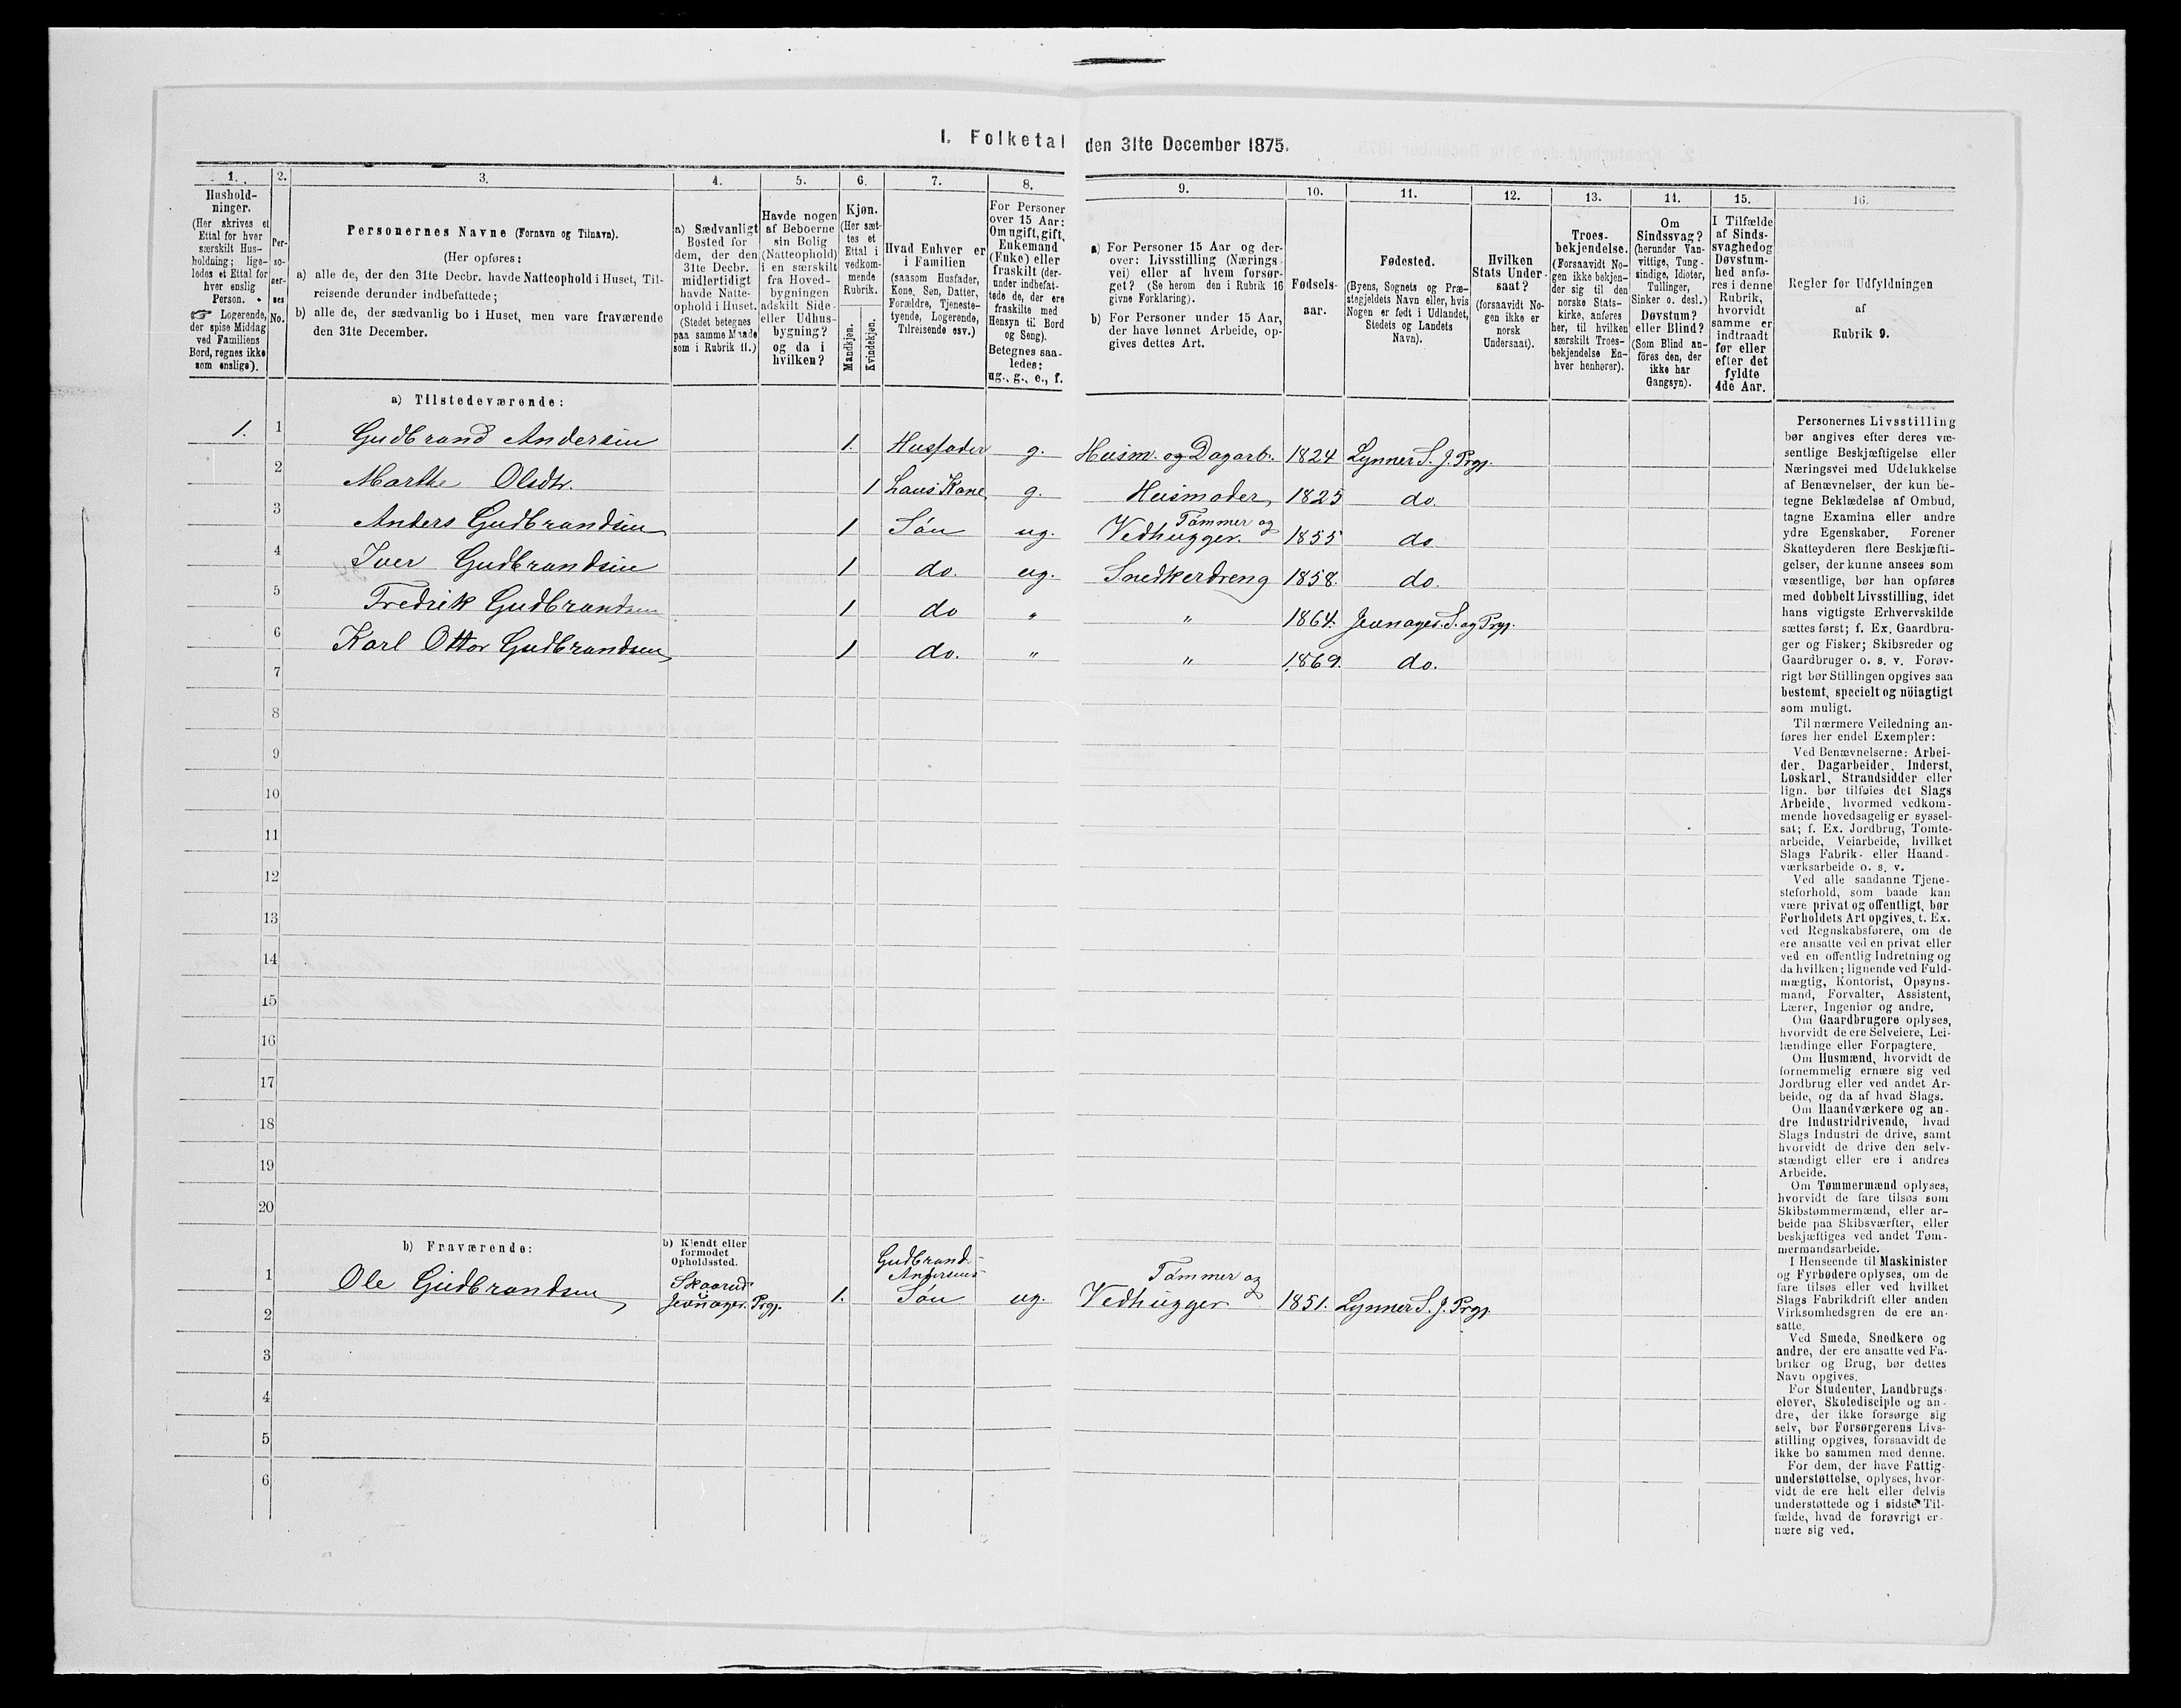 I. Folketal den 31te December 1875.
1. 2. 3. 4. 5. 6. 7. 8. 9. 10. 11. 12. 13. 14. 15. 16.
Hushold-
ninger.
(Her skrives et
Ettal for hver
særskilt Hus-
holdning; lige-
ledes et Ettal for
hver enslig
Person.
☞ Logerende,
der spise Middag
ved Familiens
Bord, regnes ikke
som enslige).
Per-
so-
ner-
nes
No.
Personernes Navne (Fornavn og Tilnavn).
(Her opføres:
a) alle de, der den 31te Decbr. havde Natteophold i Huset, Til-
reisende derunder indbefattede;
b) alle de, der sædvanlig bo i Huset, men vare fraværende
den 31te December.
a) Sædvanligt
Bosted for
dem, der den
31te Decbr.
midlertidigt
havde Natte-
ophold i Huset.
(Stedet betegnes
paa samme Maade
som i Rubrik 11.)
Havde nogen
af Beboerne
sin Bolig
(Natteophold)
i en særskilt
fra Hoved-
bygningen
adskilt Side-
eller Udhus-
bygning?
og da i
hvilken?
Kjøn.
(Her sæt-
tes et
Ettal i
vedkom-
mende
Rubrik.
Mandkjøn.
Kvindekjøn.
Hvad Enhver er
i Familien
(saasom Husfader,
Kone, Søn, Datter,
Forældre, Tjeneste-
tyende, Logerende,
Tilreisende osv.)
For Personer
over 15 Aar:
Om ugift, gift,
Enkemand
(Enke) eller
fraskilt (der-
under indbefat-
tede de, der ere
fraskilte med
Hensyn til Bord
og Seng).
Betegnes saa-
ledes:
ug., g., e., f.
a) For Personer 15 Aar og der-
over: Livsstilling (Nærings-
vei) eller af hvem forsør-
get? (Se herom den i Rubrik 16
givne Forklaring).
b) For Personer under 15 Aar,
der have lønnet Arbeide, op-
gives dettes Art.
Fødsels-
aar.
Fødested.
(Byens, Sognets og Præ-
stegjeldets Navn eller, hvis
Nogen er født i Udlandet,
Stedets og Landets
Navn).
Hvilken
Stats Under-
saat?
(forsaavidt No-
gen ikke er
norsk
Undersaat).
Troes-
bekjendelse.
(Forsaavidt No-
gen ikke bekjen-
der sig til den
norske Stats-
kirke, anføres
her, til hvilken
særskilt Troes-
bekjendelse En-
hver henhører).
Om
Sindssvag?
(herunder Van-
vittige, Tung-
sindige, Idioter,
Tullinger,
Sinker o. desl.)
Døvstum?
eller Blind?
(Som Blind an-
føres den, der
ikke har
Gangsyn).
I Tilfælde
af Sinds-
svaghed og
Døvstum-
hed anfø-
res i denne
Rubrik,
hvorvidt
samme er
indtraadt
før eller
efter det
fyldte
4de Aar.
Regler for Udfyldningen
af
Rubrik 9.
a) Tilstedeværende:
1. 1 Gudbrand Andersen 1. Husfader g. Husm. og Dagarb. 1824 Lynner S. J. Prgj.
2 Marthe Olsdtr. 1 hans Kone g. Husmoder, 1825 do.
3 Anders Gudbrandsen 1 Søn ug. Tømmer og Vedhugger. 1855 do
4 Iver Gudbrandsen 1 do. ug. Snedkerdreng 1858. do.
5 Fredrik Gudbrandsen 1 do " " 1864. Jevnager. S. og Prgj.
6 Karl Ottor Gudbrandsen 1 do. " " 1869. do.
7
8
9
10
11
12
13
14
15
16
17
18
19
20
b) Fraværende:
b) Kjendt eller
formodet
Opholdssted.
1 Ole Gudbrandsen, Skaarud Jevnager. Prgj. 1. Gudbrand Andersens Søn ug. Tømmer og Vedhugger 1851. Lynner S. J. Prgj
2
3
4
5
6
Personernes Livsstilling
bør angives efter deres væ-
sentlige Beskjæftigelse eller
Næringsvei med Udelukkelse
af Benævnelser, der kun be-
tegne Beklædelse af Ombud,
tagne Examina eller andre
ydre Egenskaber. Forener
Skatteyderen flere Beskjæfti-
gelser, der kunne ansees som
væsentlige, bør han opføres
med dobbelt Livsstilling, idet
hans vigtigste Erhvervskilde
sættes først; f. Ex. Gaardbru-
ger og Fisker; Skibsreder og
Gaardbruger o. s. v. Forøv-
rigt bør Stillingen opgives saa
bestemt, specielt og nöiagtigt
som muligt.
Til nærmere Veiledning an-
føres her endel Exempler:
Ved Benævnelserne: Arbei-
der, Dagarbeider, Inderst,
Løskarl, Strandsidder eller
lign. bør tilføies det Slags
Arbeide, hvormed vedkom-
mende hovedsagelig er syssel-
sat; f. Ex. Jordbrug, Tomte-
arbeide, Veiarbeide, hvilket
Slags Fabrik- eller Haand-
værksarbeide o. s. v.
Ved alle saadanne Tjene-
steforhold, som baade kan
være privat og offentligt, bør
Forholdets Art opgives, t. Ex.
ved Regnskabsførere, om de
ere ansatte ved en privat eller
ved en offentlig Indretning og
da hvilken; lignende ved Fuld-
mægtig, Kontorist, Opsyns-
mand, Forvalter, Assistent,
Lærer, Ingeniør og andre.
Om Gaardbrugere oplyses,
hvorvidt de ere Selveiere, Lei-
lændinge eller Forpagtere.
Om Husmænd, hvorvidt de
fornemmelig ernære sig ved
Jordbrug eller ved andet Ar-
beide, og da af hvad Slags.
Om Haandværkere og an-
dre Industridrivende, hvad
Slags Industri de drive, samt
hvorvidt de drive den selv-
stændigt eller ere i andres
Arbeide.
Om Tømmermænd oplyses,
hvorvidt de fare tilsøs som
Skibstømmermænd, eller ar-
beide paa Skibsværfter, eller
beskjæftiges ved andet Tøm-
mermandsarbeide.
I Henseende til Maskinister
og Fyrbødere oplyses, om de
fare tilsøs eller ved hvilket
Slags Fabrikdrift eller anden
Virksomhedsgren de ere an-
satte.
Ved Smede, Snedkere og
andre, der ere ansatte ved Fa-
briker og Brug, bør dettes
Navn opgives.
For Studenter, Landbrugs-
elever, Skoledisciple og an-
dre, der ikke forsørge sig
selv, bør Forsørgerens Livs-
stilling opgives, forsaavidt de
ikke bo sammen med denne.
For dem, der have Fattig-
understøttelse, oplyses, hvor-
vidt de ere helt eller delvis
understøttede og i sidste Til-
fælde, hvad de forøvrigt er-
nære sig ved.